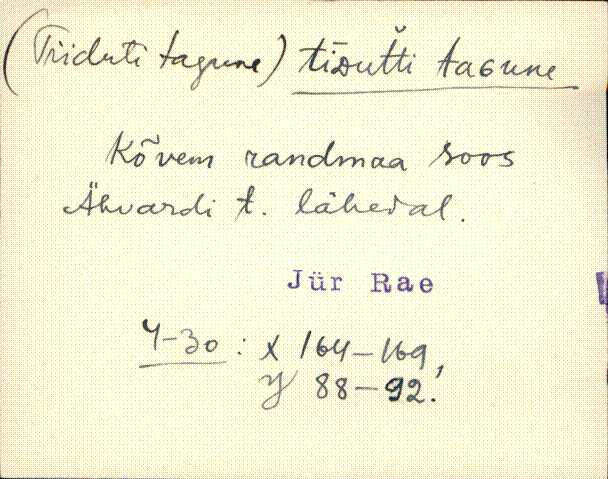 (Tiiduti tagune) tīᴅutti taGune
Kõvem randmaa soos
Ähvardi t. lähedal.
Jür Rae
4-30: x 164-169,
y 88-92.